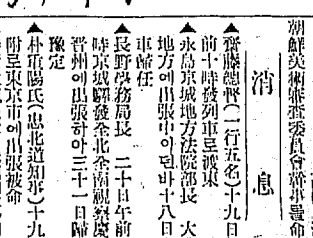 朝鮮美術審査委員會幹事를命
消息
▲齋藤總督(一行五名)十九日
前十時發列車로渡東
▲永島京城地方法院部長 大
地方에出張中이던바十八日
車歸任
▲長野學務局長 二十日午前
時京城驛發全北全南視察慶
晉州에出張하야三十一日歸
豫定
▲朴重陽氏(忠北道知事)十九
附로東京市에出張被命